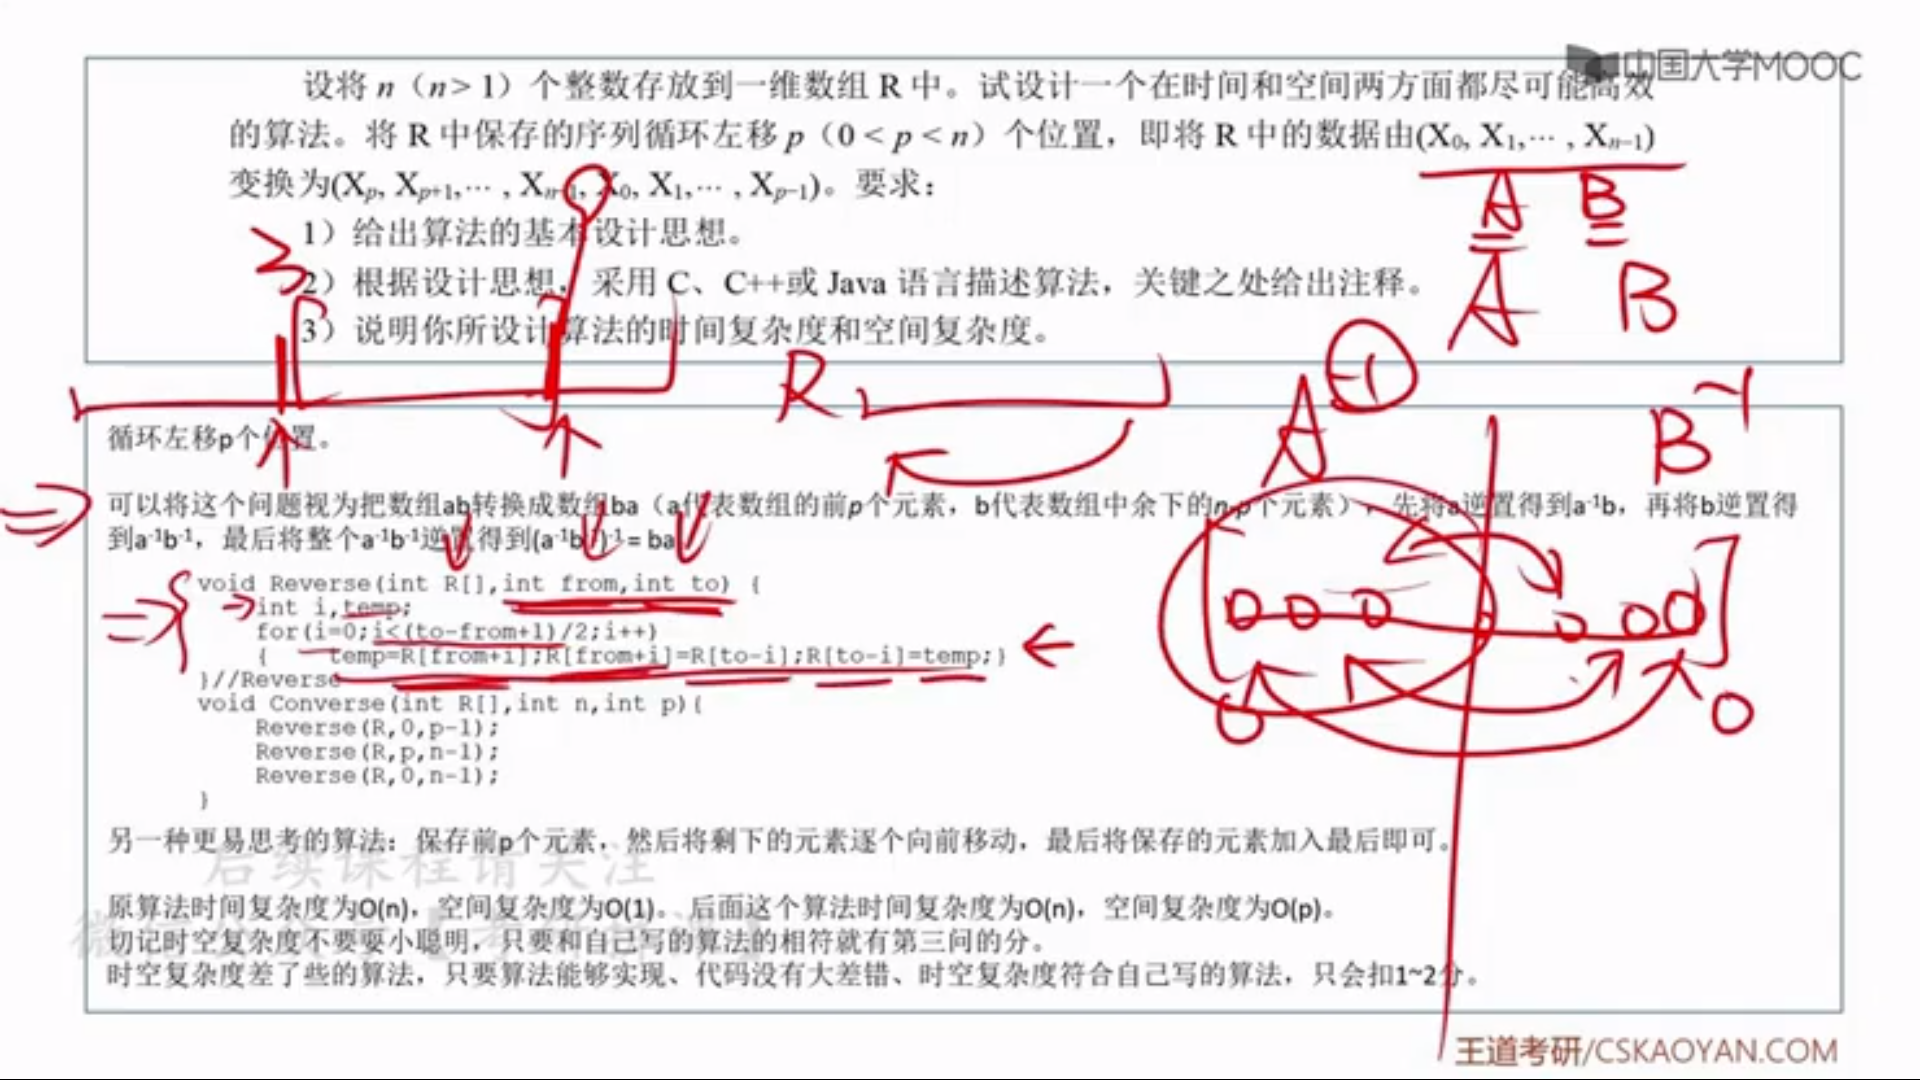 中国大学MOOC
设将 n（n > 1）个整数存放到一维数组 R 中。试设计一个在时间和空间两方面都尽可能高效
的算法。将 R 中保存的序列循环左移 p（0 < p < n）个位置，即将 R 中的数据由(X0, X1,⋯ , Xn−1)
变换为(Xp, Xp+1,⋯ , Xn−1, X0, X1,⋯ , Xp−1)。要求：
1）给出算法的基本设计思想。
2）根据设计思想，采用 C、C++或 Java 语言描述算法，关键之处给出注释。
3）说明你所设计算法的时间复杂度和空间复杂度。
A B
A B
R
A -1 B -1
循环左移p个位置。
可以将这个问题视为把数组ab转换成数组ba（a代表数组的前p个元素，b代表数组中余下的n-p个元素），先将a逆置得到a-1b，再将b逆置得
到a-1b-1，最后将整个a-1b-1逆置得到(a-1b-1)-1 = ba
void Reverse(int R[],int from,int to) {
int i,temp;
for(i=0;i<(to-from+1)/2;i++)
{ temp=R[from+i];R[from+i]=R[to-i];R[to-i]=temp;}
}//Reverse
void Converse(int R[],int n,int p){
Reverse(R,0,p-1);
Reverse(R,p,n-1);
Reverse(R,0,n-1);
}
另一种更易思考的算法：保存前p个元素，然后将剩下的元素逐个向前移动，最后将保存的元素加入最后即可。
后续课程请关注
原算法时间复杂度为O(n)，空间复杂度为O(1)。后面这个算法时间复杂度为O(n)，空间复杂度为O(p)。
切记时空复杂度不要耍小聪明，只要和自己写的算法的相符就有第三问的分。
时空复杂度差了些的算法，只要算法能够实现、代码没有大差错、时空复杂度符合自己写的算法，只会扣1~2分。
王道考研/CSKAOYAN.COM